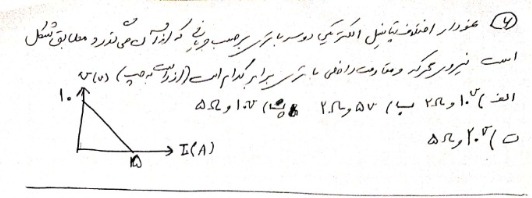 ۷) نمودار اختلاف پتانسیل الکتریکی دو سر باتری بر حسب جریانی که از آن می‌گذرد مطابق شکل
است نیروی محرکه و مقاومت داخلی باتری برابر کدام است (از راست به چپ)
الف) ۱۰v و ۲Ω ب) ۵v و ۲Ω پ) ۱۰v و ۵Ω
ت) ۲۰v و ۵Ω
V(v)
۱۰
I(A)